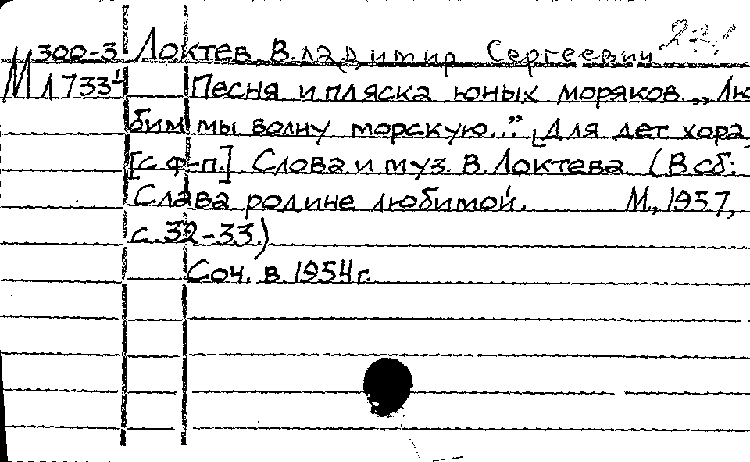 300-3 Локтев, Владимир Сергеевич
М 1733⁴ Песня и пляска юных моряков „Лю
бим мы волну морскую..." [Для дет. хора
[с ф-п.] Слова и муз. В. Локтева (В сб:
Слава родине любимой. М., 1957,
с. 32-33.)
Соч. в 1954 г.